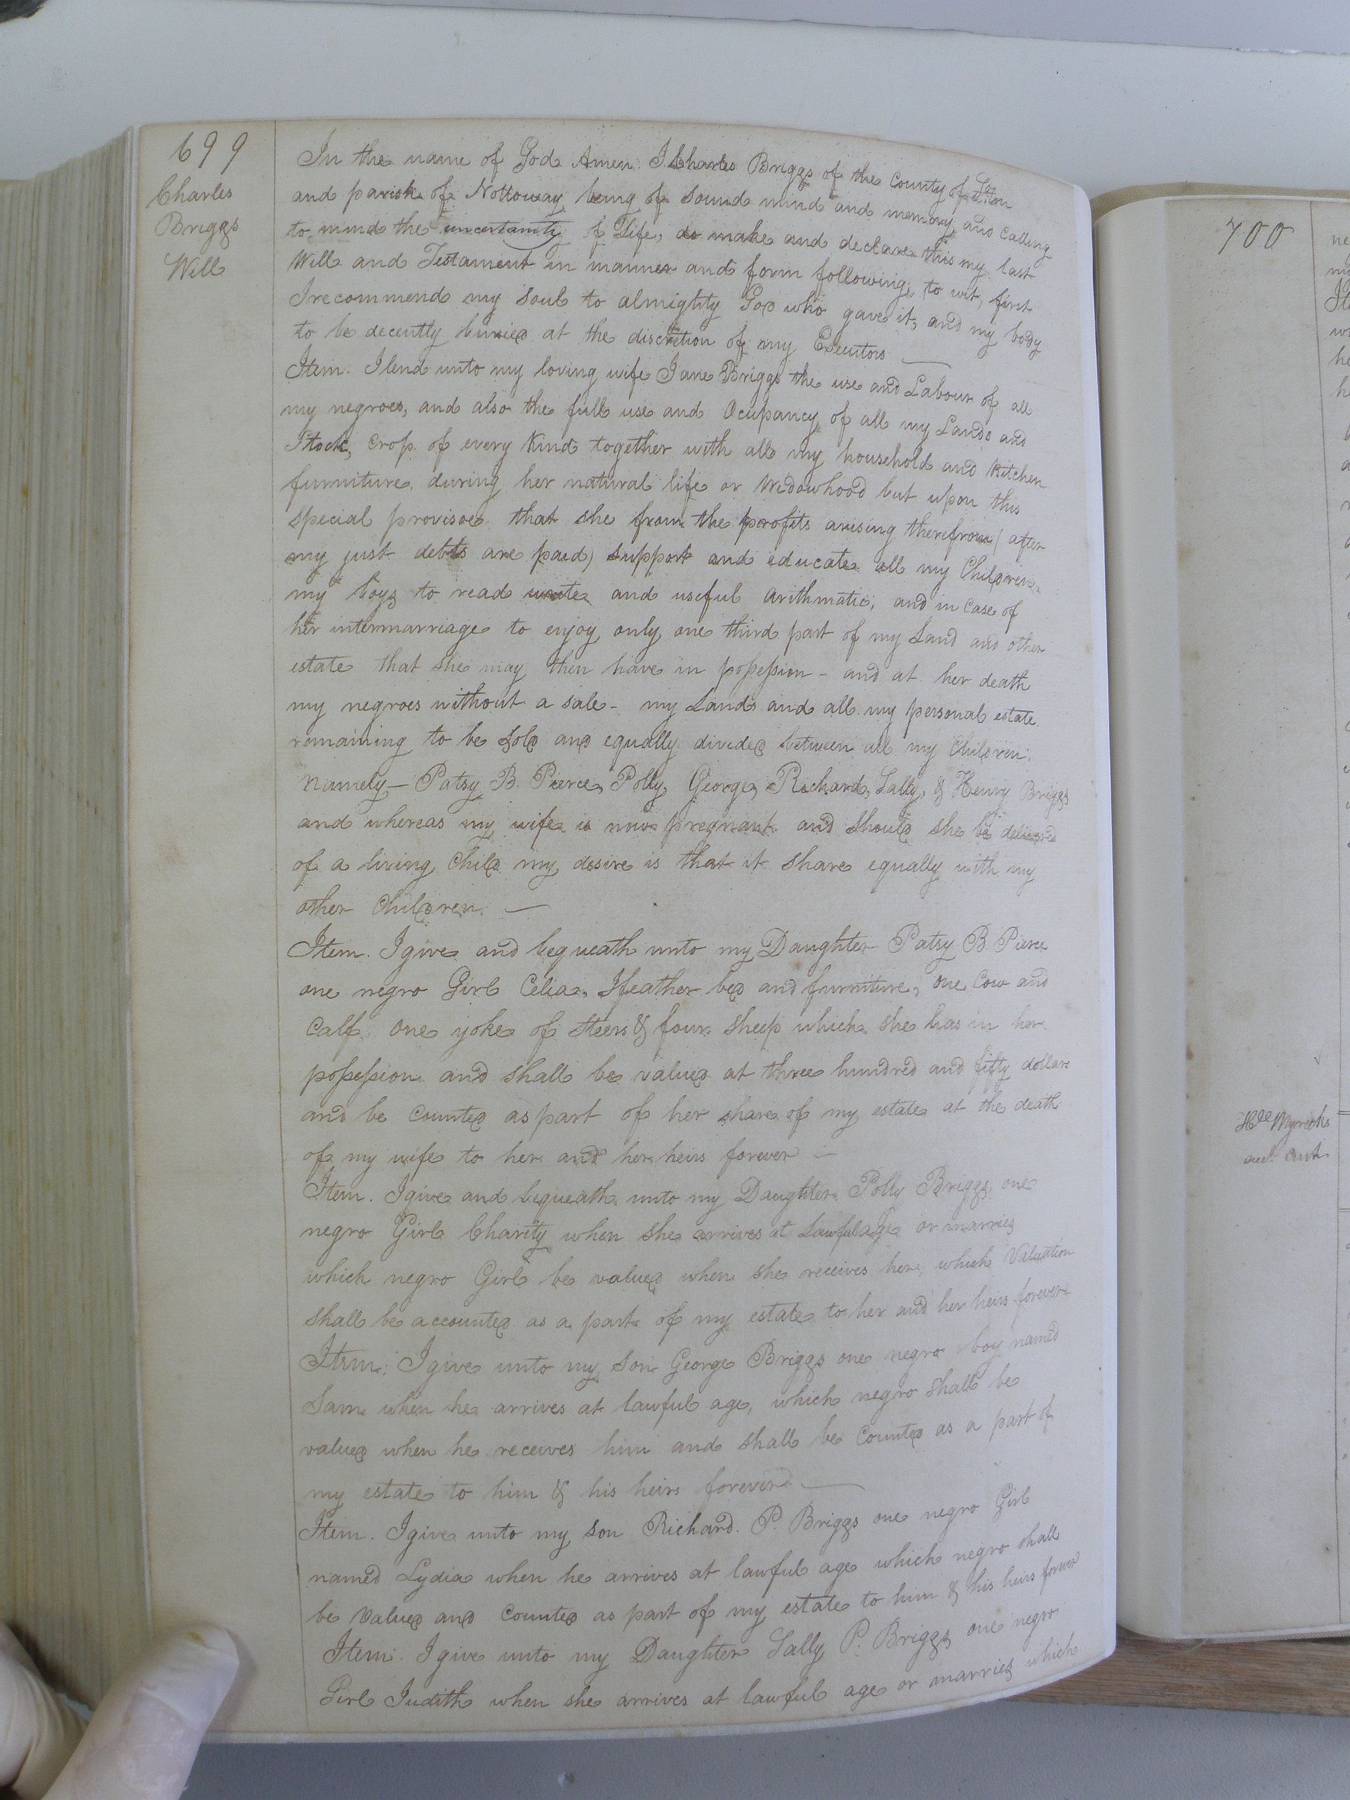 699
Charles
Briggs
Will
In the name of God Amen. I Charles Briggs of the County of S.ton
and parish of Nottoway being of Sound mind and memory, and Calling
to mind the uncertainty of Life, do make and declare this my last
Will and Testament in manner and form following, to wit, first
I recommend my Soul to almighty God who gave it, and my body
to be decently buried at the discretion of my Executors —
Item. I lend unto my loving wife Jane Briggs the use and Labour of all
my negroes, and also the full use and Ocupancy of all my Lands and
Stock, Crop of every Kind together with all my household and Kitchen
furniture during her natural life or Widowhood but upon this
special provisoe that she from the profits arising therefrom (after
my just debts are paid) Support and educate all my Children
my boys to read write and useful arithmatic, and in Case of
her intermarriage to enjoy only one third part of my Land and other
estate that she may then have in possession - and at her death
my negroes without a sale - my Lands and all my personal estate
remaining to be Sold and equally divided between all my Children
Namely — Patsy B. Pierce, Polly, George, Richard, Sally, & Henry Briggs
and whereas my wife is now pregnant and Should she be delivered
of a living Child my desire is that it Share equally with my
other Children. —
Item. I give and bequeath unto my Daughter Patsy B Pierce
one negro Girl Celia, 1 feather bed and furniture, One Cow and
Calf. One yoke of Steers & four Sheep which she has in her
possession and shall be valued at three hundred and fifty dollars
and be Counted as part of her share of my estate at the death
of my wife to her and her heirs forever —
Item. I give and bequeath unto my Daughter Polly Briggs one
negro Girl Charity when she arrives at Lawful age or marries
which negro Girl be valued when she receives her, which Valuation
shall be accounted as a part of my estate to her and her heirs forever
Item. I give unto my Son George Briggs one negro boy named
Sam when he arrives at lawful age, which negro shall be
valued when he receives him and shall be Counted as a part of
my estate to him & his heirs forever —
Item. I give unto my Son Richard. P. Briggs one negro Girl
named Lydia when he arrives at lawful age which negro shall
be Valued and Counted as part of my estate to him & his heirs forever
Item. I give unto my Daughter Sally P. Briggs one negro
Girl Judith when she arrives at lawful age or marries which
700